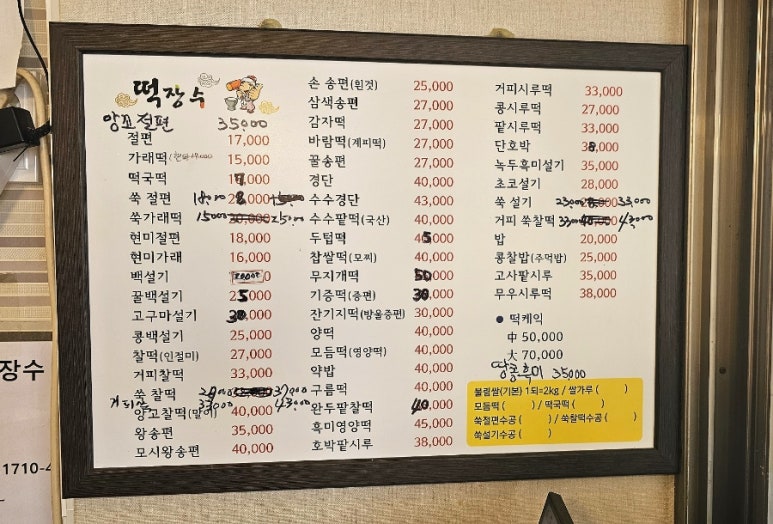 떡장수
앙꼬절편 35,000
절편 17,000
가래떡 15,000
떡국떡
쑥 절편
쑥가래떡 15000 30,000 25000
현미절편 18,000
현미가래 16,000
백설기
꿀백설기 25,000
고구마설기 30,000
콩백설기 25,000
찰떡(인절미) 27,000
거피찰떡 33,000
쑥 찰떡 37,000
거피쑥 33,000 43,000
앙꼬찰떡(말이) 40,000
왕송편 35,000
모시왕송편 40,000
손 송편(흰것) 25,000
삼색송편 27,000
감자떡 27,000
바람떡(계피떡) 27,000
꿀송편 27,000
경단 40,000
수수경단 43,000
수수팥떡(국산) 40,000
두텁떡 45,000
찹쌀떡(모찌) 40,000
무지개떡 50,000
기증떡(증편) 30,000
잔기지떡(방울증편) 30,000
양떡 40,000
모듬떡(영양떡) 40,000
약밥 40,000
구름떡 40,000
완두팥찰떡 40,000
흑미영양떡 45,000
호박팥시루 38,000
거피시루떡 33,000
콩시루떡 27,000
팥시루떡 33,000
단호박 38,000
녹두흑미설기 35,000
초코설기 28,000
쑥 설기 23,000 33,000
거피 쑥찰떡 33,000 40,000 43,000
밥 20,000
콩찰밥(주먹밥) 25,000
고사팥시루 35,000
무우시루떡 38,000
● 떡케익
中 50,000
大 70,000
땅콩흑미 35000
불림쌀(기본) 1되=2kg / 쌀가루 ( )
모듬떡 ( ) / 떡국떡 ( )
쑥절편수공 ( ) / 쑥찰떡수공 ( )
쑥설기수공 ( )
장수
1710-4